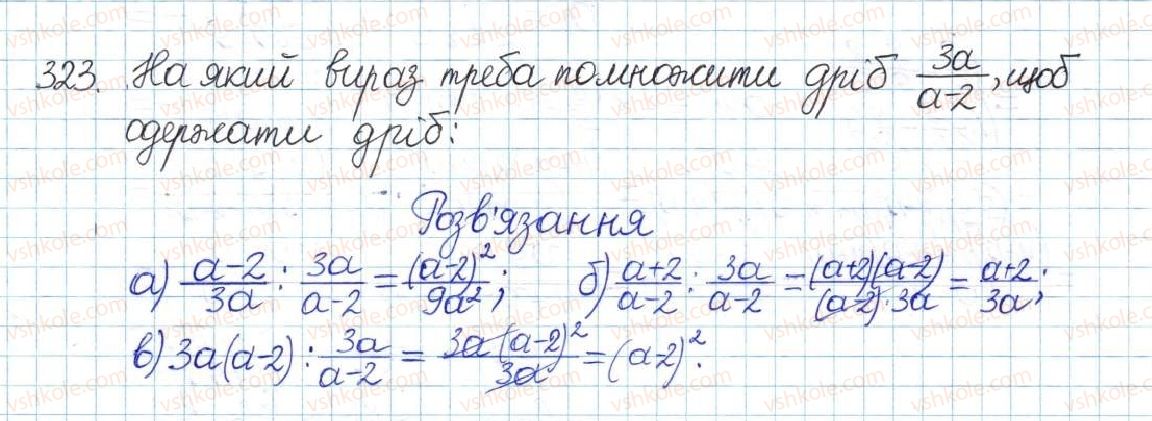 323. На який вираз треба помножити дріб \frac{3a}{a-2}, щоб
одержати дріб:
Розв'язання
а) \frac{a-2}{3a} : \frac{3a}{a-2} = \frac{(a-2)^2}{9a^2}; б) \frac{a+2}{a-2} : \frac{3a}{a-2} = \frac{(a+2)(a-2)}{(a-2)·3a} = \frac{a+2}{3a};
в) 3a(a-2) : \frac{3a}{a-2} = \frac{3a(a-2)^2}{3a} = (a-2)^2.